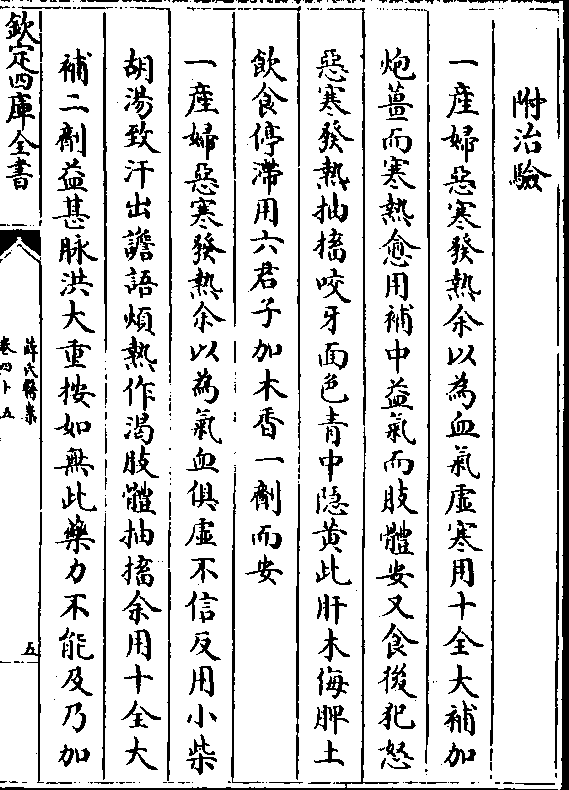 附治驗
一產婦惡寒發熱余以為血氣虛寒用十全大補加
炮薑而寒熱愈用補中益氣而肢體安又食後犯怒
惡寒發熱抽搐咬牙面色青中隱黃此肝木侮脾土
飲食停滯用六君子加木香一劑而安
一產婦惡寒發熱余以為氣血俱虛不信反用小柴
胡湯致汗出譫語煩熱作渴肢體抽搐余用十全大
補二劑益甚脉洪大重按如無此藥力不能及乃加
欽定四庫全書
薛氏醫案
卷四十五
五